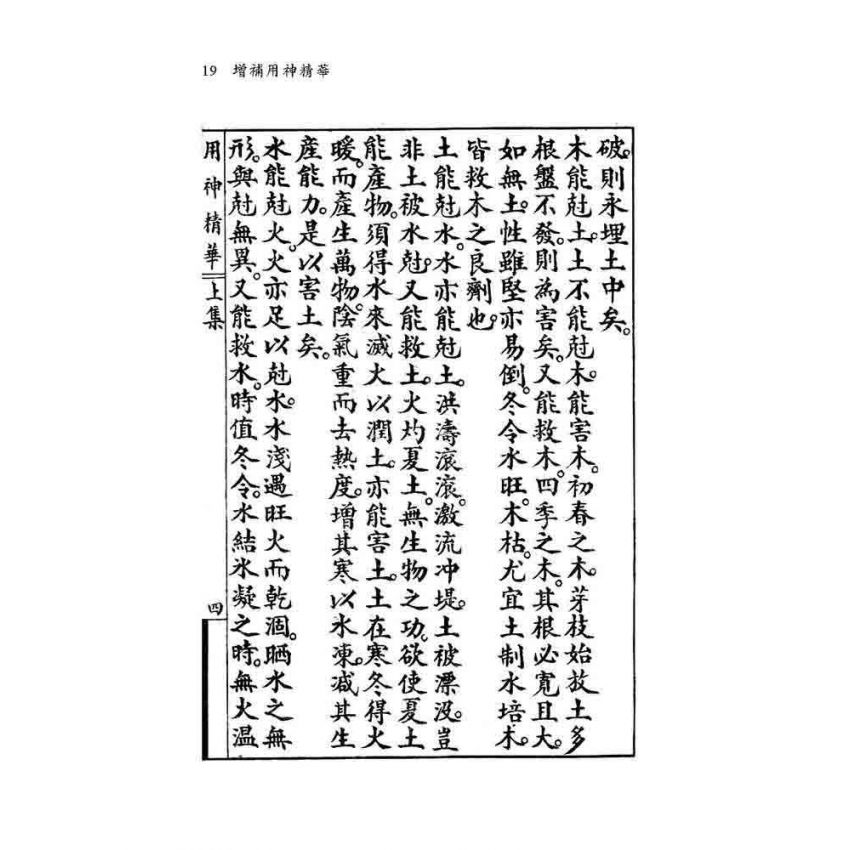 19 增補用神精華
破。則永埋土中矣。
木能尅土。土不能尅木。能害木。初春之木。芽枝始放土多
根盤不發。則為害矣。又能救木。四季之木。其根必寬且大。
如無土。性雖堅亦易倒。冬令水旺。木枯。尤宜土制水培木。
皆救木之良劑也。
土能尅水。水亦能尅土。洪濤滾滾。激流冲堤。土被漂沒。豈
非土被水尅。又能救土。火灼夏土。無生物之功。欲使夏土
能產物。須得水來滅火以潤土。亦能害土。土在寒冬得火
暖。而產生萬物。陰氣重而去熱度。增其寒以水凍。减其生
產能力。是以害土矣。
水能尅火。火亦足以尅水。水淺遇旺火而乾涸。晒水之無
形。與尅無異。又能救水。時值冬令。水結氷凝之時。無火温
用神精華 上集 四